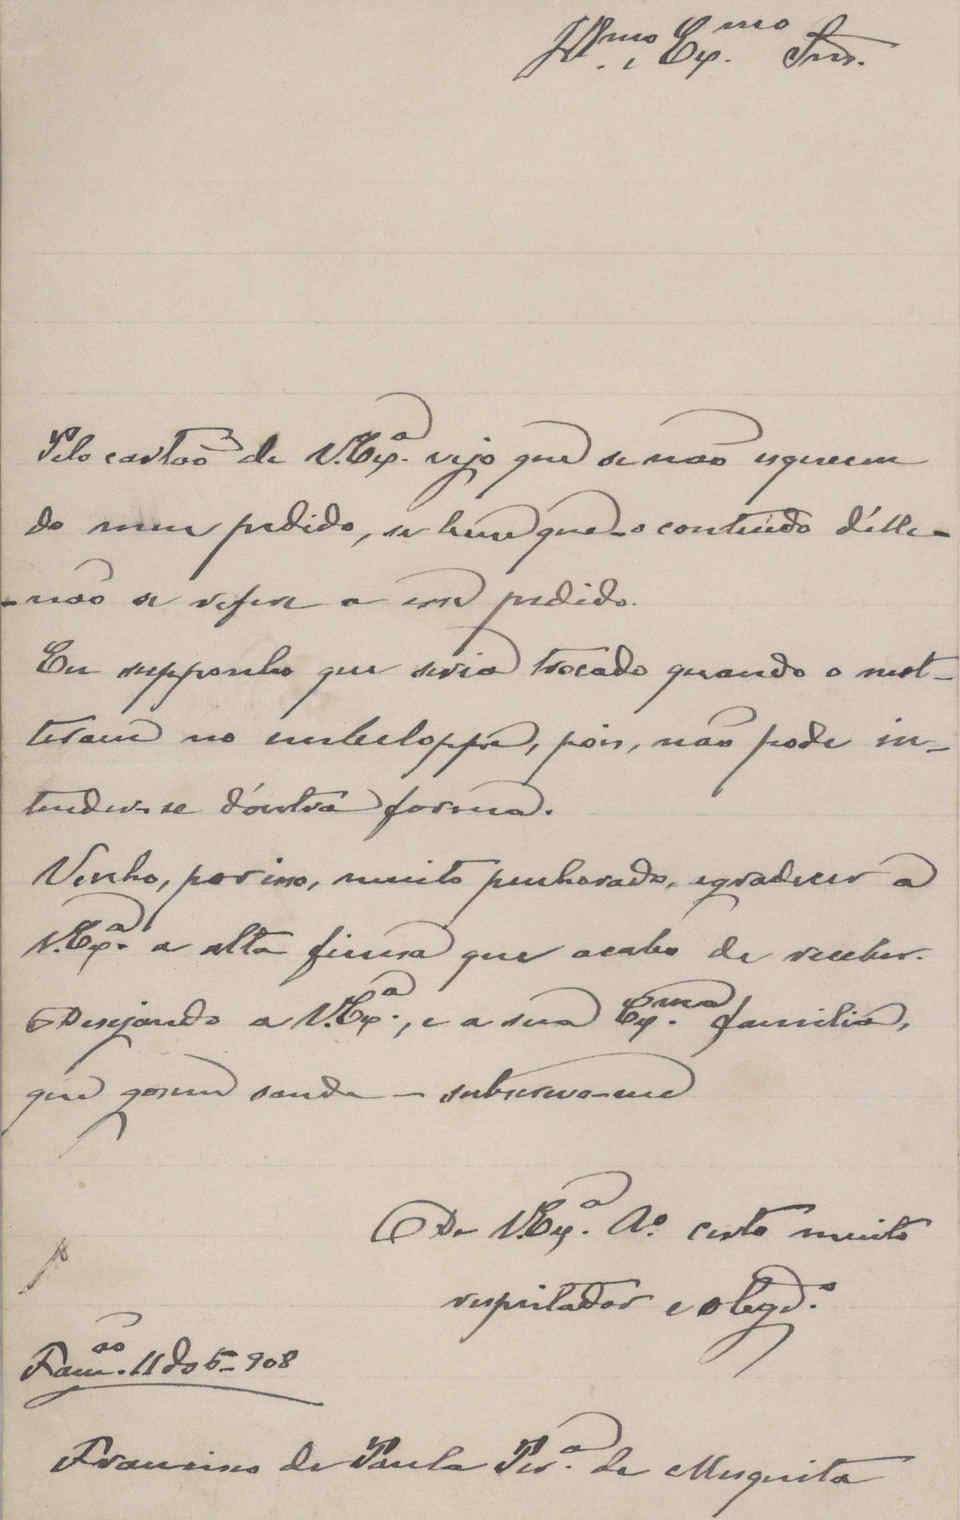 Illmo. e Exmo. Snr.
Pelo cartão de V. Exa. vejo que se não esqueceu
do meu pedido, se bem que o contéudo d'elle-
-não se refere a esse pedido.
Eu supponho que seria trocado quando o met-
teram no enbeloppe, pois, não pode in-
tender-se d'outra forma.
Venho, por isso, muito penhorado, agradecer a
V. Exa. a alta finesa que acabo de receber.
Desejando a V. Exa., e a sua Exma. familia,
que gosem saude - subscrevo-me
De V. Exa. Ao. certo muito
respeitador e obgdo.
Famão. 11 do 5-908
Francisco de Paula Pera. de Mesquita